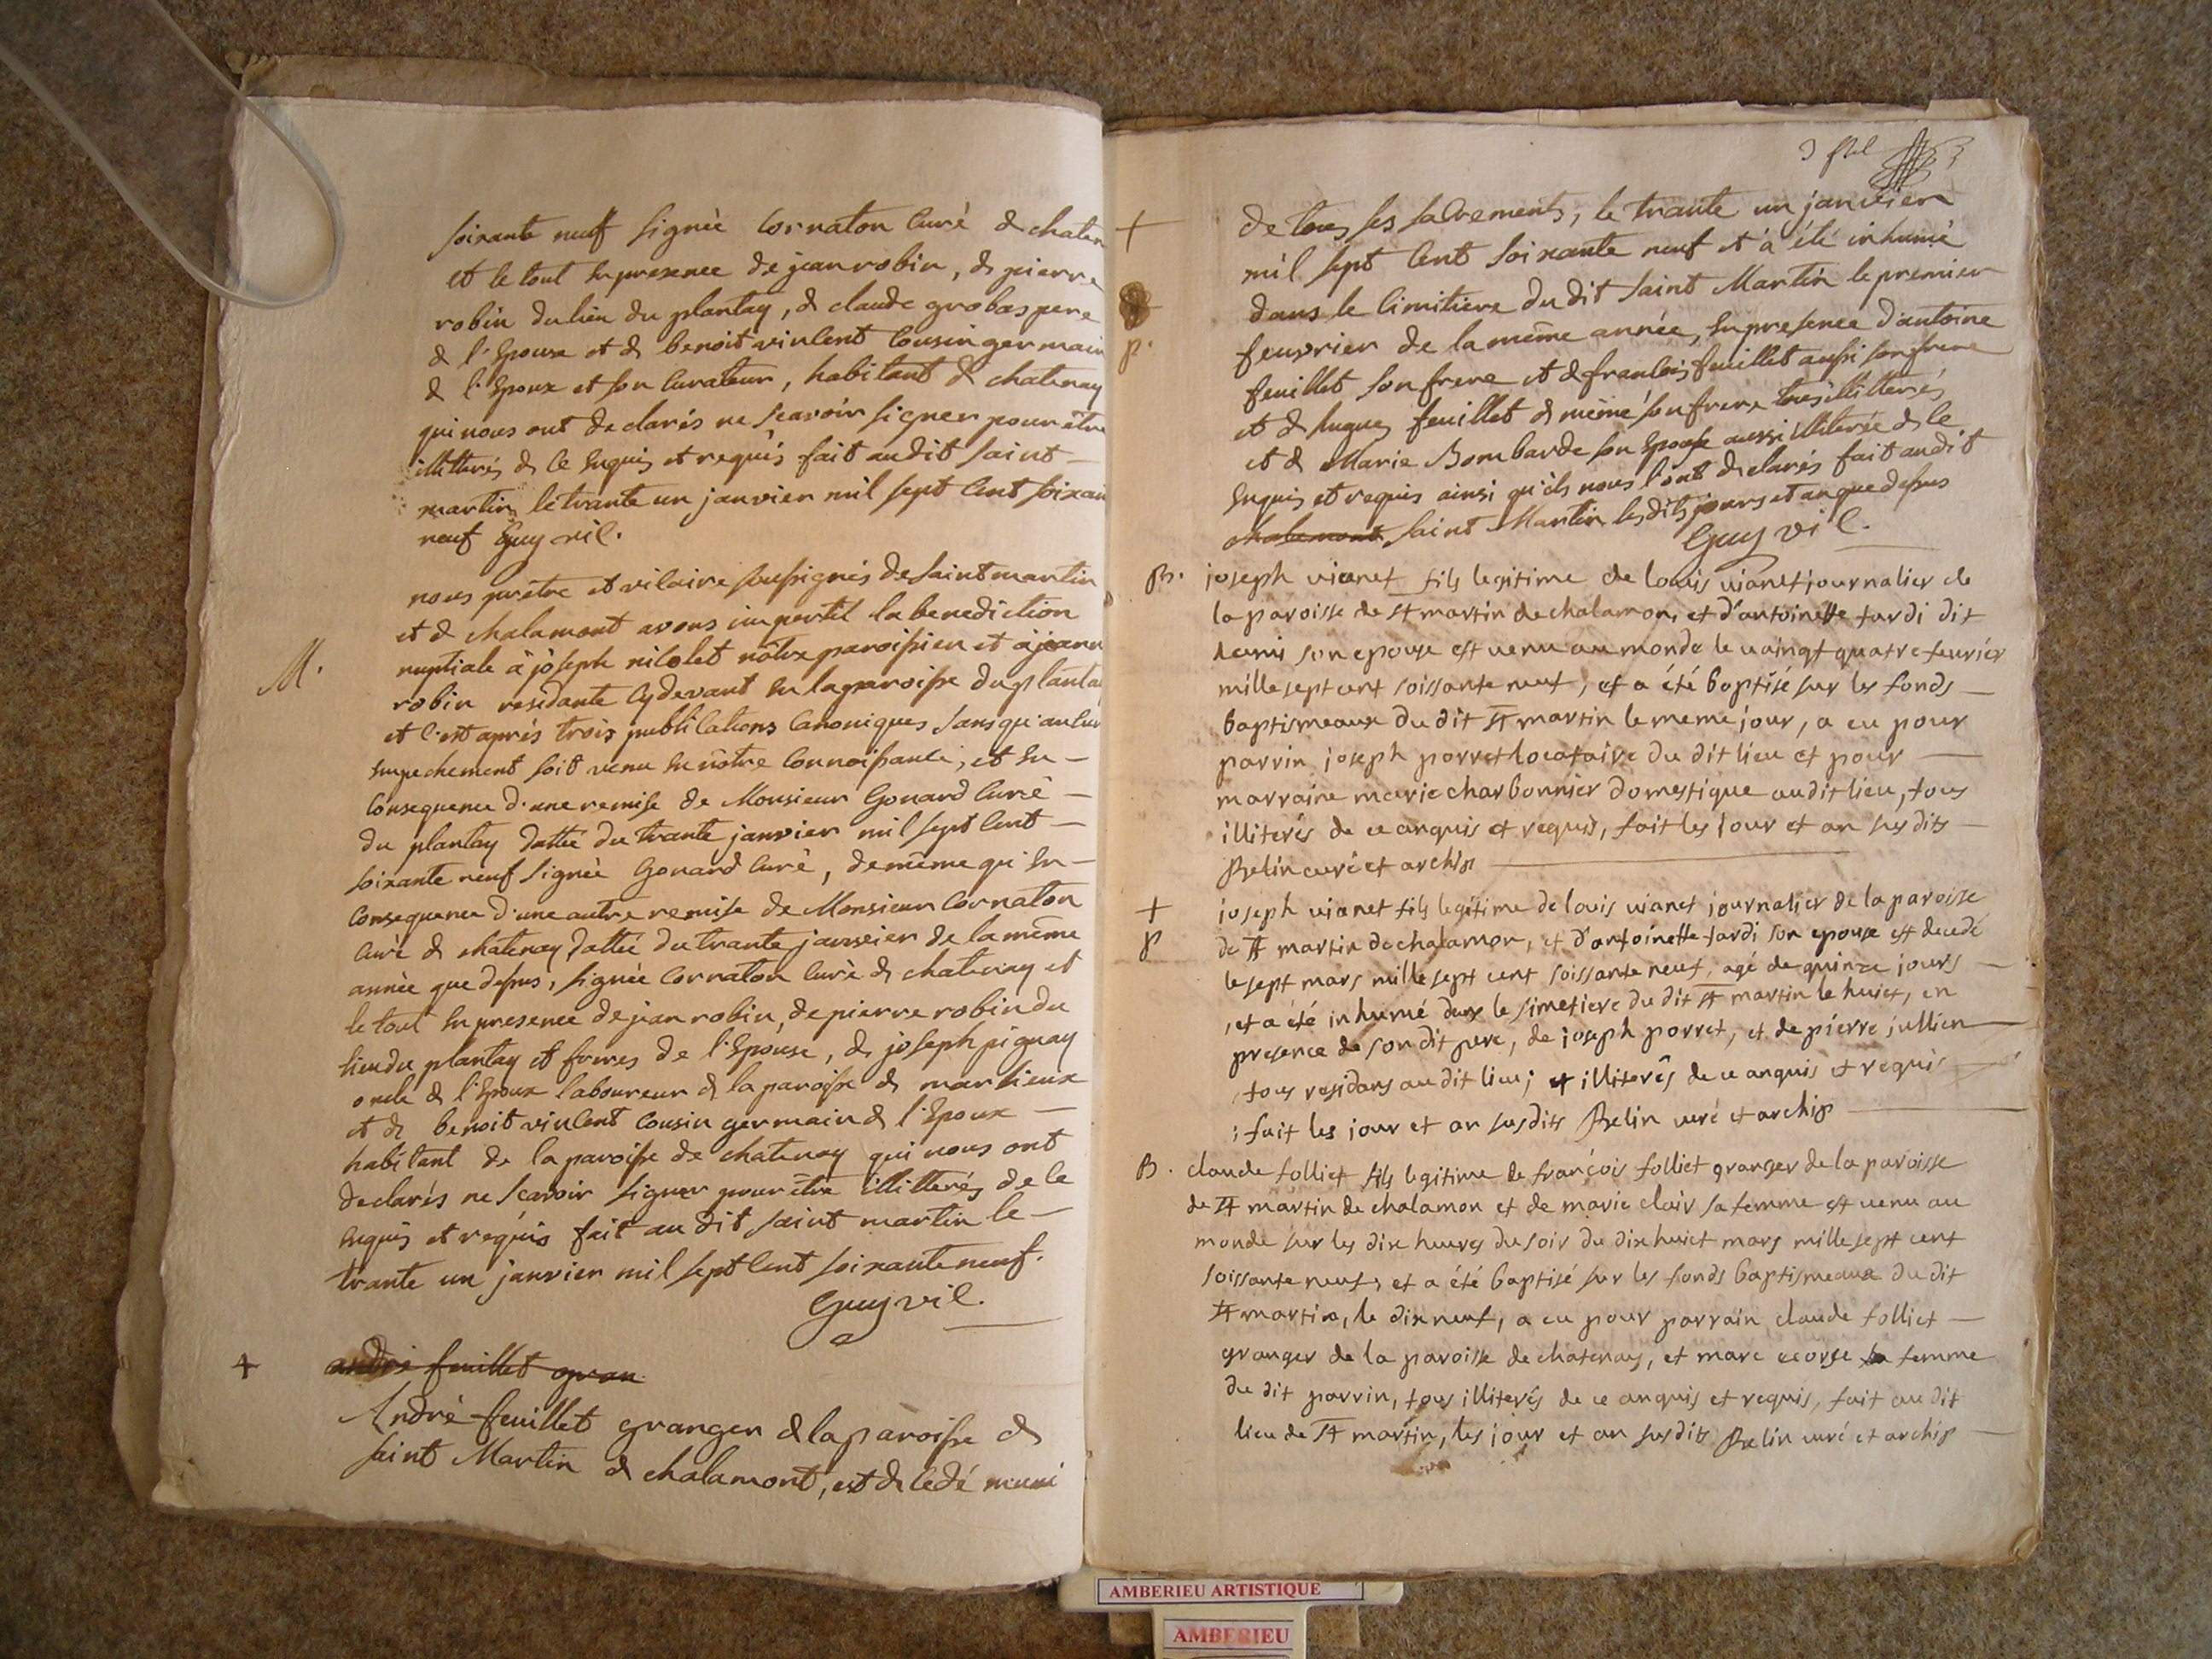 soixante neuf signée Cornaton Curé de chaten
et le tout en presence de jean robin, de pierre
robin du lieu du plantay, de claude grobas pere
de l'Epouse et de benoit vincent Cousin germain
de l'Epoux et son Curateur, habitant de chatenay
qui nous ont declarés ne scavoir signer pour être
illitterés de ce enquis et requis fait audit saint
martin le trante un janvier mil sept Cent soixan
neuf Guy vic.
nous prêtre et vicaire soussignés de saint martin
et de chalamont avons imparti la benediction
M. nuptiale à joseph nicolet nôtre paroissien et à jeann
robin residante Cydevant en la paroisse du planta
et C'est aprés trois publications Canoniques sans qu'aucun
empechement soit venu en nôtre Connoissance, et en
Consequence d'une remise de Monsieur Gonard Curé
du plantay dattée du trante janvier mil sept Cent
soixante neuf signée Gonard Curé, de même qu'en
Consequence d'une autre remise de Monsieur Cornaton
Curé de chatenay dattée du trante janvier de la même
année que dessus, signée Cornaton Curé de chatenay et
le tout en presence de jean robin, de pierre robin du
lieu du plantay et freres de l'Epouse, de joseph piguay
oncle de l'Epoux laboureur de la paroisse de marlieux
et de benoit vincent Cousin germain de l'Epoux
habitant de la paroisse de chatenay qui nous ont
declarés ne scavoir signer pour être illitterés de ce
enquis et requis fait au dit saint martin le
trante un janvier mil sept Cent soixante neuf.
Guy vic.
+ andré feuillet gran
André feuillet granger de la paroisse de
saint Martin de chalamont, est decedé muni
3
+ de tous ses sacrements, le trante un janvier
mil sept Cent soixante neuf et a été inhumé
dans le Cimitiere du dit saint Martin le premier
p. feuvrier de la même année, en presence d'antoine
feuillet son frere et de francois feuillet aussi son frere
et de hugues feuillet de même son frere tous illitterés
et de Marie Bombarde son Epouse aussi illiterée de ce
enquis et requis ainsi qu'ils nous l'ont declarés fait audit
chalamont saint Martin les dits jours et an que dessus
Guy vic.
B. joseph vianet fils legitime de louis vianet journalier de
la paroisse de st martin de chalamon, et d'antoinette tardi dit
denis son epouse est venu au monde le vaingt quatre feurier
mille sept cent soissante neuf, et a été baptisé sur les fonds
baptismeaux du dit st martin le meme jour, a eu pour
parrin joseph porret locataire du dit lieu et pour
marraine marie charbonnier domestique audit lieu, tous
illiterés de ce anquis et requis, fait les jour et an susdits
Belin curé et archip
+ joseph vianet fils legitime de louis vianet journalier de la paroisse
p de st martin de chalamon, et d'antoinette tardi son epouse est decedé
le sept mars mille sept cent soissante neuf, agé de quinze jours
et a été inhumé dans le simetiere du dit st martin le huict, en
presence de son dit pere, de joseph porret, et de pierre jullien
tous residans au dit lieu; et illiterés de ce anquis et requis
fait les jour et an susdits Belin curé et archip
B. claude folliet fils legitime de françois folliet granger de la paroisse
de st martin de chalamon et de marie clair sa femme est venu au
monde sur les dix heures du soir du dix huict mars mille sept cent
soissante neuf, et a été baptisé sur les fonds baptismeaux du dit
st martin, le dix neuf, a eu pour parrain claude folliet
granger de la paroisse de chatenay, et marc ecorse sa femme
du dit parrin, tous illiterés de ce anquis et requis, fait au dit
lieu de st martin, les jour et an susdits Belin curé et archip
AMBERIEU ARTISTIQUE
AMBERIEU